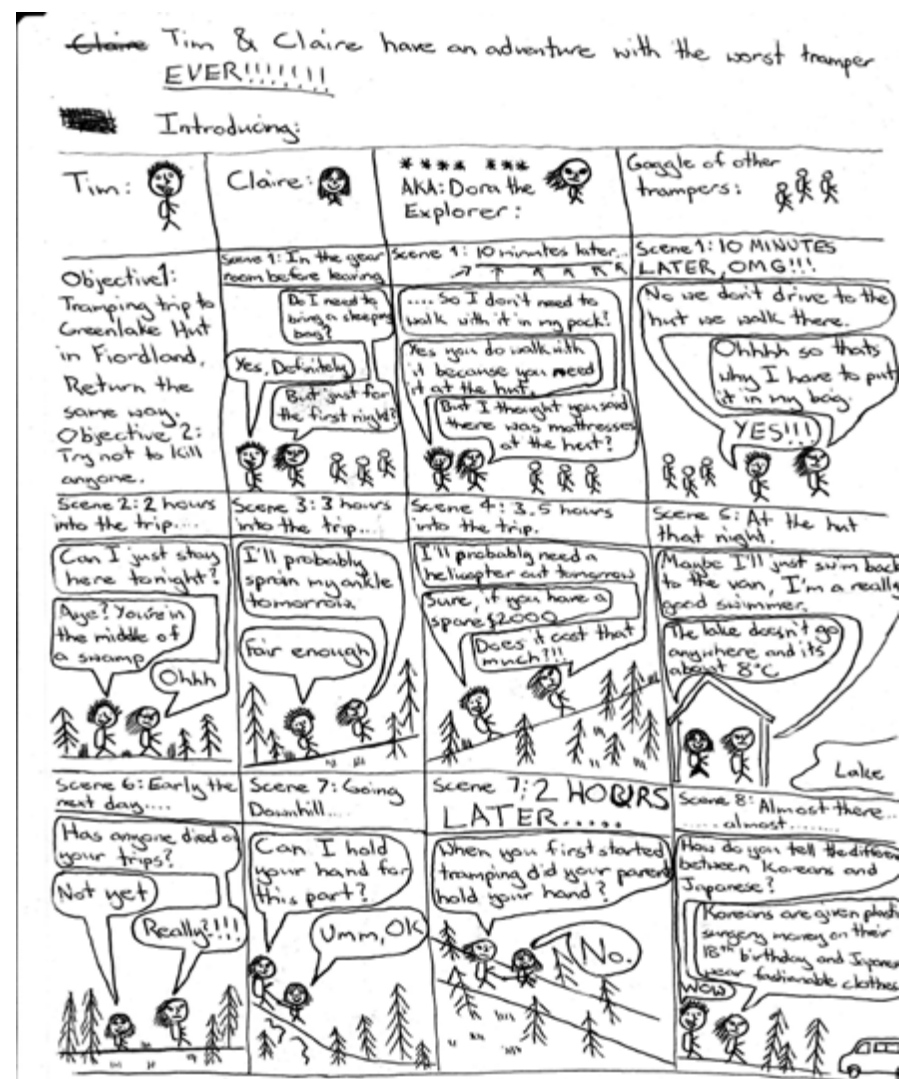 Claire Tim & Claire have an adventure with the worst tramper
EVER!!!!!!!
Introducing:
Tim:
Claire:
**** ****
AKA: Dora the
Explorer:
Gaggle of other
trampers:
Objective1:
Tramping trip to
Greenlake Hut
in Fiordland.
Return the
same way.
Objective 2:
Try not to kill
anyone.
Scene 1: In the gear
room before leaving
Do I need to
bring a sleeping
bag?
Yes, Definitely
But just for
the first night?
Scene 1: 10 minutes later...
.... So I don't need to
walk with it in my pack?
Yes you do walk with
it because you need
it at the hut.
But I thought you said
there was mattresses
at the heat?
Scene 1: 10 MINUTES
LATER, OMG!!!
No we don't drive to the
hut we walk there.
Ohhhh so thats
why I have to put
it in my bag.
YES!!!
Scene 2: 2 hours
into the trip....
Can I just stay
here tonight?
Aye? You're in
the middle of
a swamp
Ohhh
Scene 3: 3 hours
into the trip...
I'll probably
sprain my ankle
tomorrow.
Fair enough
Scene 4: 3.5 hours
into the trip.
I'll probably need a
helicopter out tomorrow
Sure, if you have a
spare $2000
Does it cost that
much?!!
Scene 5: At the hut
that night.
Maybe I'll just swim back
to the van, I'm a really
good swimmer.
The lake doesn't go
anywhere and its
about 8°C
Lake
Scene 6: Early the
next day....
Has anyone died on
your trips?
Not yet
Really?!!!
Scene 7: Going
Downhill...
Can I hold
your hand for
this part?
Umm, OK
Scene 7: 2 HOURS
LATER.....
When you first started
tramping did your parent
hold your hand?
No.
Scene 8: Almost there...
..... almost........
How do you tell the difference
between Koreans and
Japanese?
Koreans are given plastic
surgery money on their
18th birthday and Japanese
wear fashionable clothes
WOW